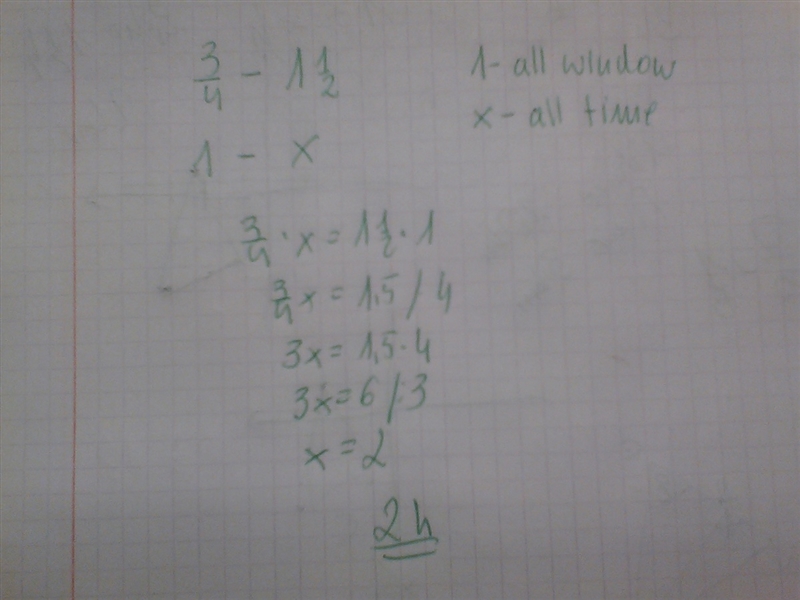 3/4 - 1 1/2
1 - all window
x - all time
1 - x
3/4 · x = 1 1/2 · 1
3/4 x = 1,5 / 4
3x = 1,5 · 4
3x = 6 /:3
x = 2
2 h